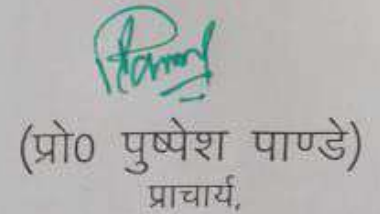 (प्रो0 पुष्पेश पाण्डे)
प्राचार्य,